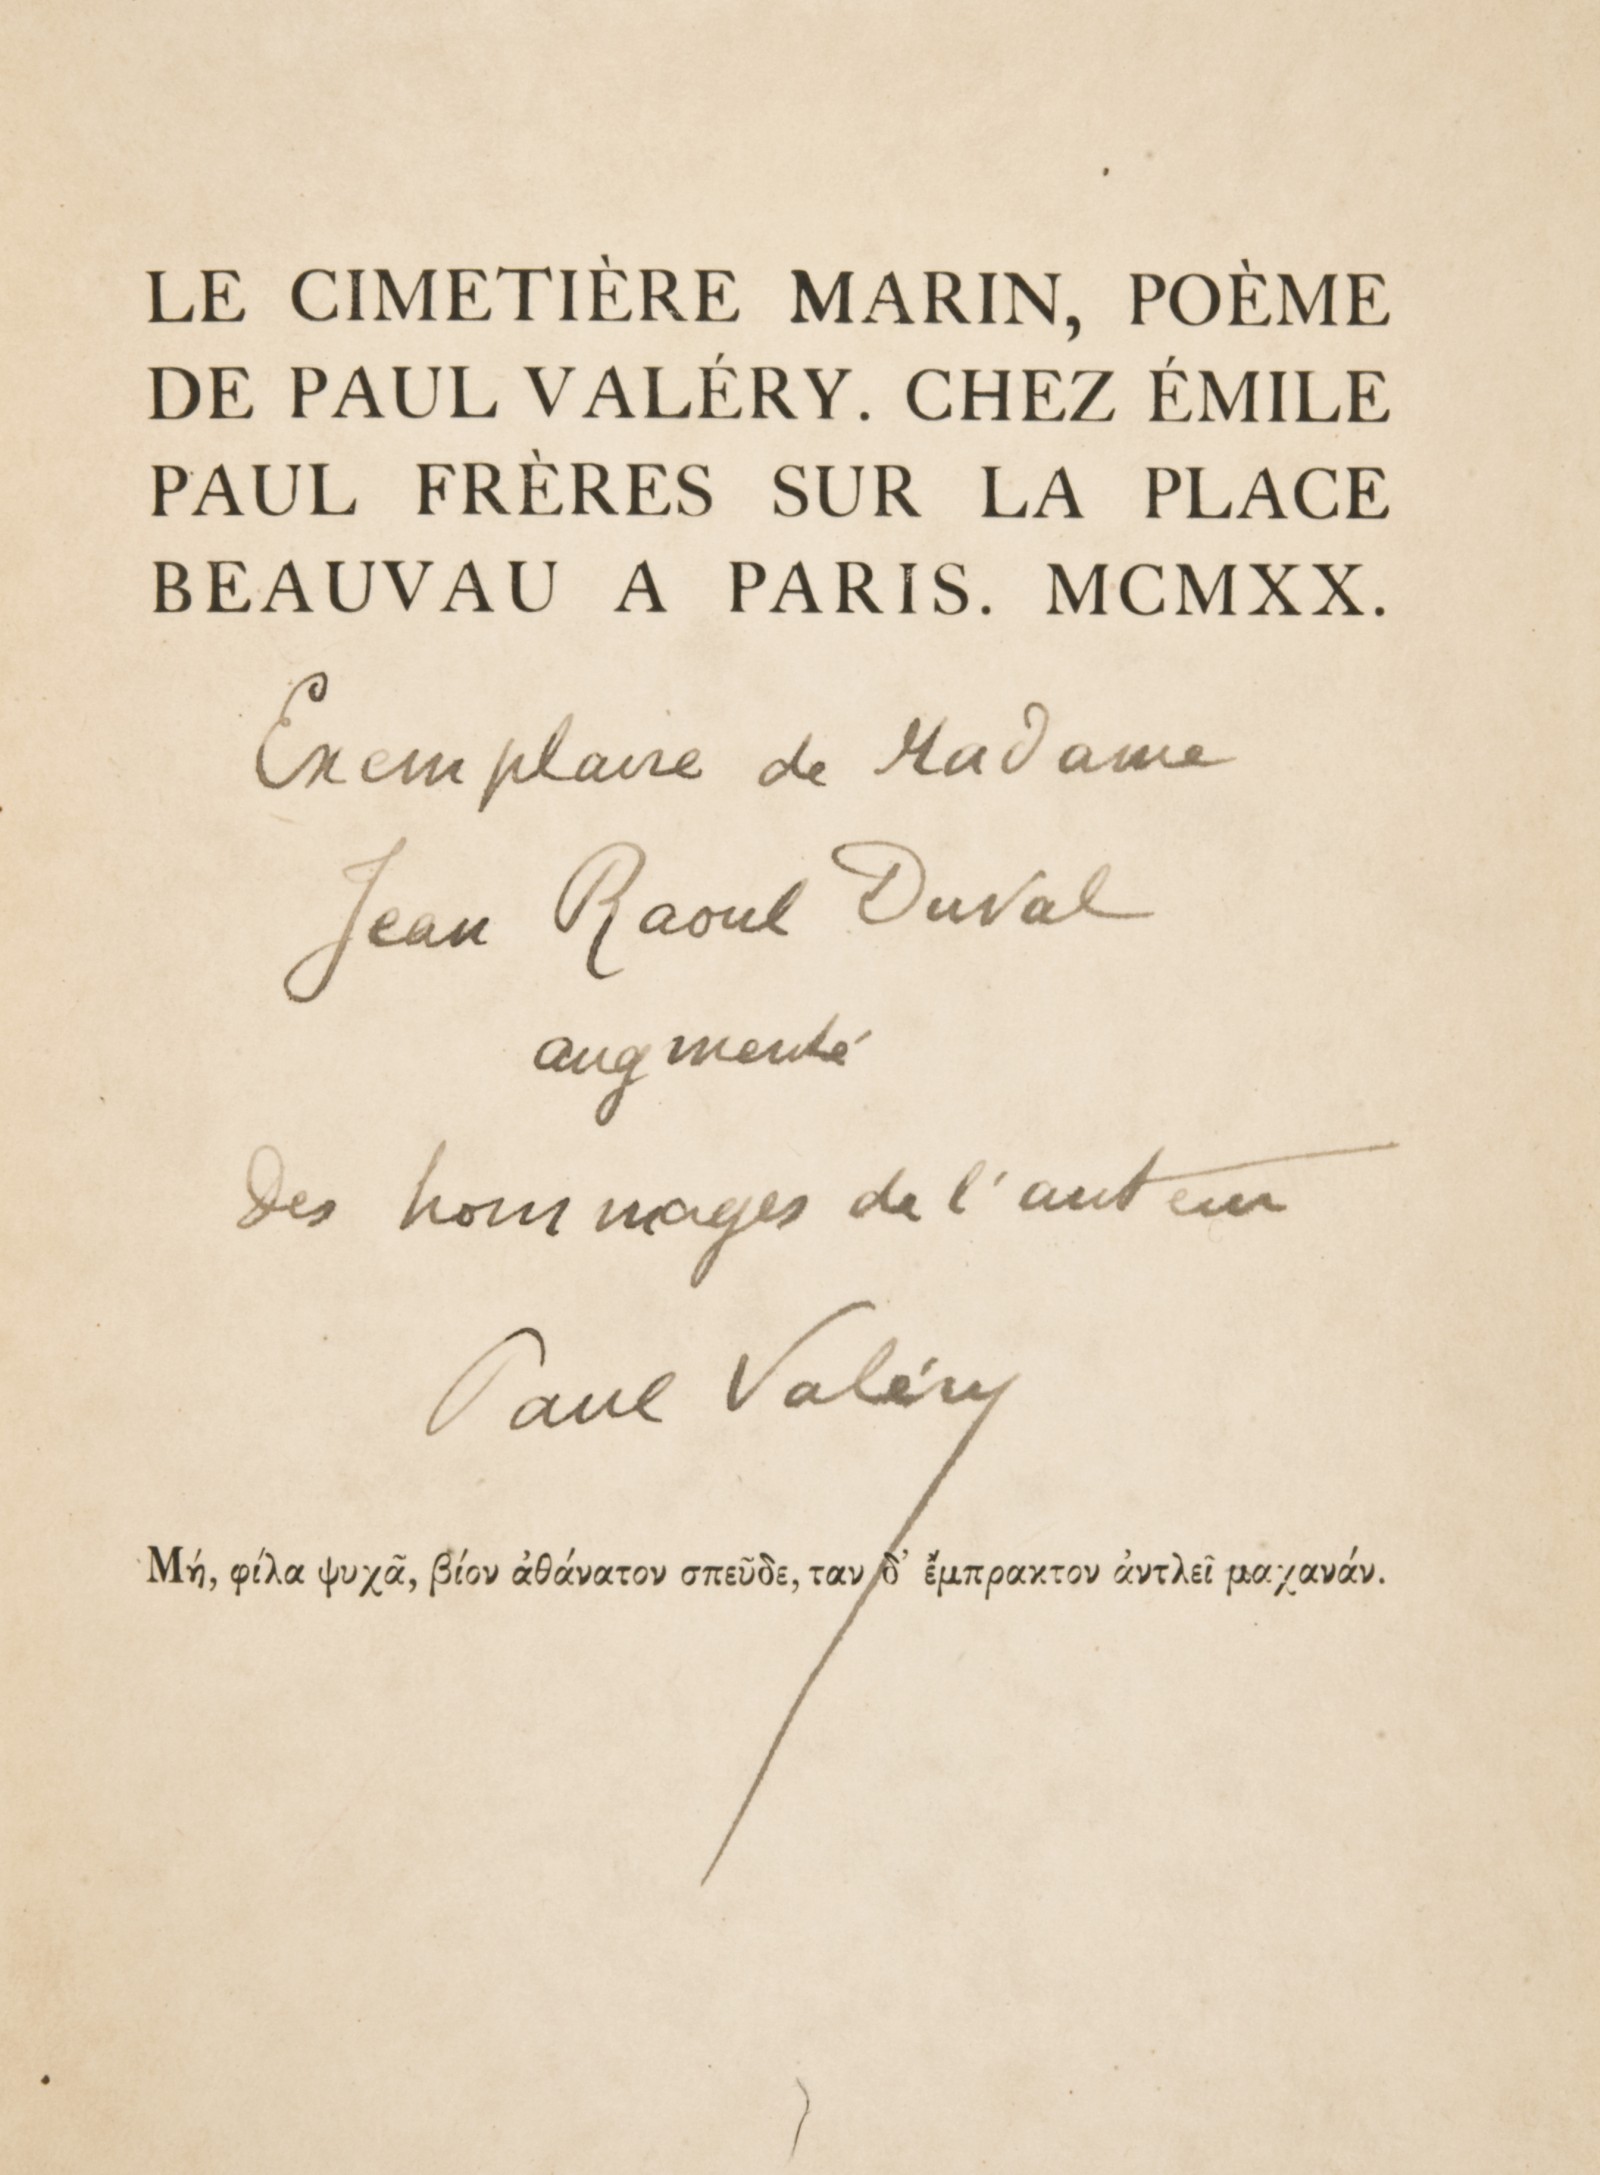 LE CIMETIÈRE MARIN, POÈME
DE PAUL VALÉRY. CHEZ ÉMILE
PAUL FRÈRES SUR LA PLACE
BEAUVAU A PARIS. MCMXX.
Exemplaire de Madame
Jean Raoul Duval
augmenté
des hommages de l'auteur
Paul Valéry
Μή, φίλα ψυχᾶ, βίον ἀθάνατον σπεῦδε, ταν δ' ἔμπρακτον ἀντλεῖ μαχανάν.